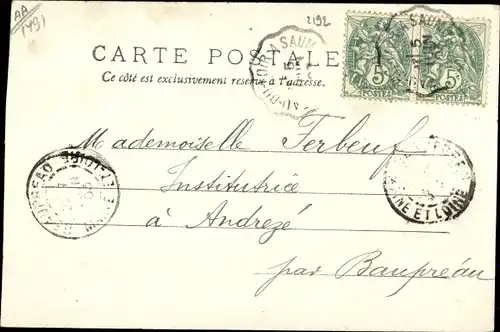 AA
1491
2192
CARTE POSTALE
Ce côté est exclusivement réservé à l'adresse.
5c 5c
POSTES POSTES
Mademoiselle Ferbeuf
Institutrice
à Andrezé
par Baupréau
BEAUPREAU MAINE ET LOIRE